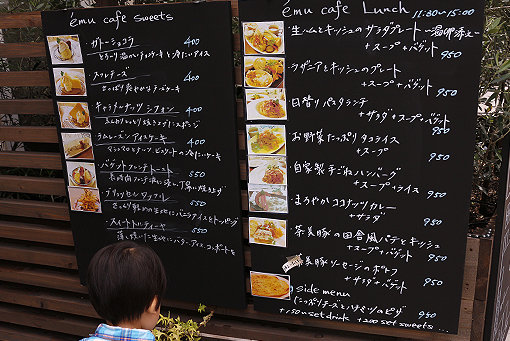 ému cafe sweets
・ガトーショコラ 400
・スフレチーズ 400
さっぱり爽やかなチーズケーキ
・キャラメルナッツシフォン 400
・ラムレーズンアイスケーキ 400
・バゲットフレンチトースト 550
・ブリュッセルワッフル 550
・スイートトルティーヤ 550
ému cafe Lunch 11:30~15:00
・生ハムとキッシュのサラダプレート ~温卵添え~
+スープ+バゲット 950
・ラザーアとキッシュのプレート
+スープ+バゲット 950
・日替りパスタランチ
+サラダ+スープ+バゲット 950
・お野菜たっぷりタコライス
+スープ 950
・自家製手ごねハンバーグ
+スープ+ライス 950
・まろやかココナッツカレー
+サラダ 950
・茶美豚の田舎風パテとキッシュ
+スープ+バゲット 950
茶美豚ソーセージのポトフ
+サラダ+バゲット 950
side menu
チーズとハチミツのピザ 950
+150 set drink +200 set sweets ...